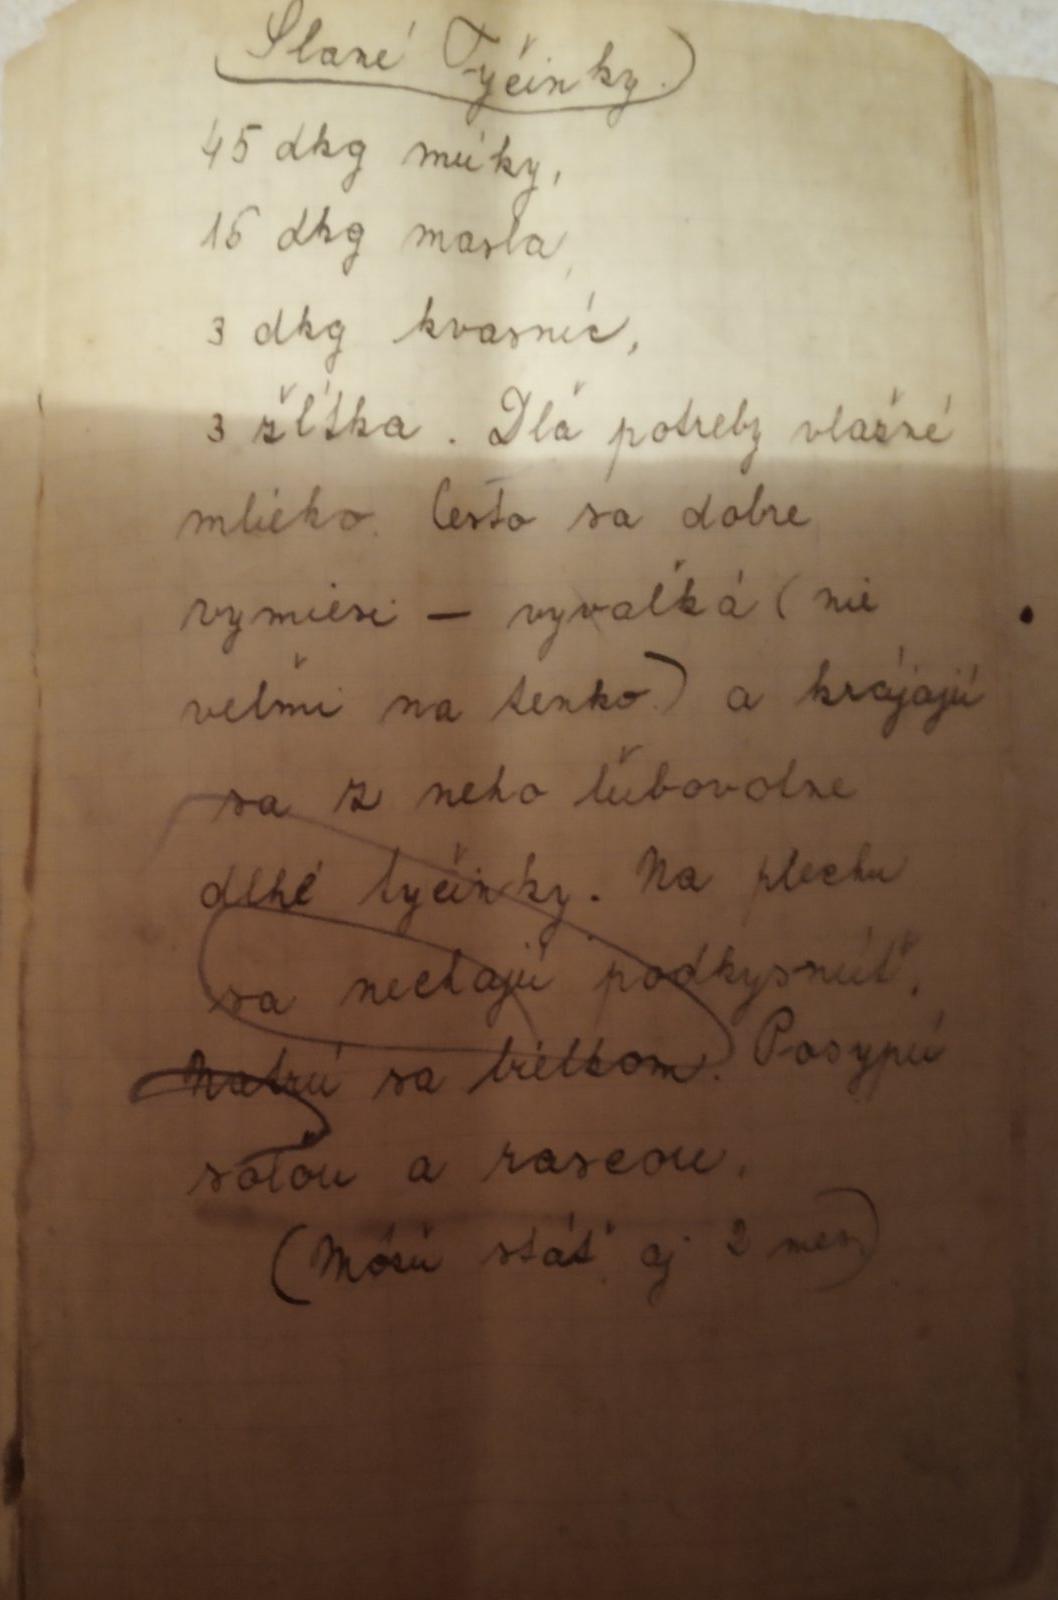 Slané Tyčinky.
45 dkg múky,
16 dkg masla,
3 dkg kvasníc,
3 žĺtka. Dľa potreby vlažné
mlieko. Cesto sa dobre
vymiesi – vyvaľká (nie
veľmi na tenko.) a krájajú
sa z neho ľubovolne
dlhé tyčinky. Na plechu
sa nechajú podkysnúť.
Natrú sa bielkom. Posypú
soľou a rascou.
(Môžu stáť aj 2 mes)